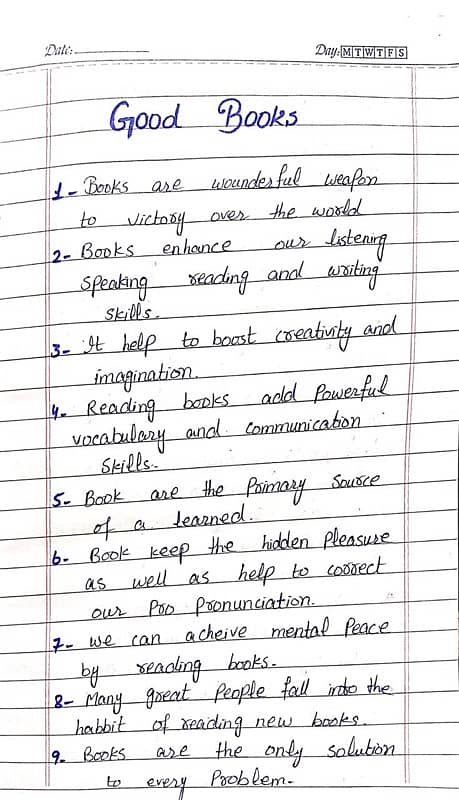 Date:
Day: M T W T F S
Good Books
1- Books are wounderful weapon
to victory over the world
2- Books enhance our listening
speaking reading and writing
skills.
3- It help to boost creativity and
imagination.
4- Reading books add Powerful
vocabulary and communication
skills.
5- Book are the Primary source
of a learned.
6- Book keep the hidden Pleasure
as well as help to correct
our Pro Pronunciation.
7- we can acheive mental Peace
by reading books.
8- Many great People fall into the
habbit of reading new books.
9- Books are the only solution
to every Problem.